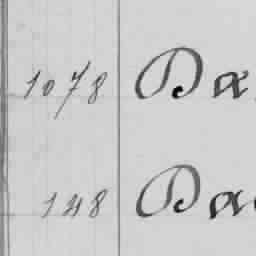 1078 Da
148 Da